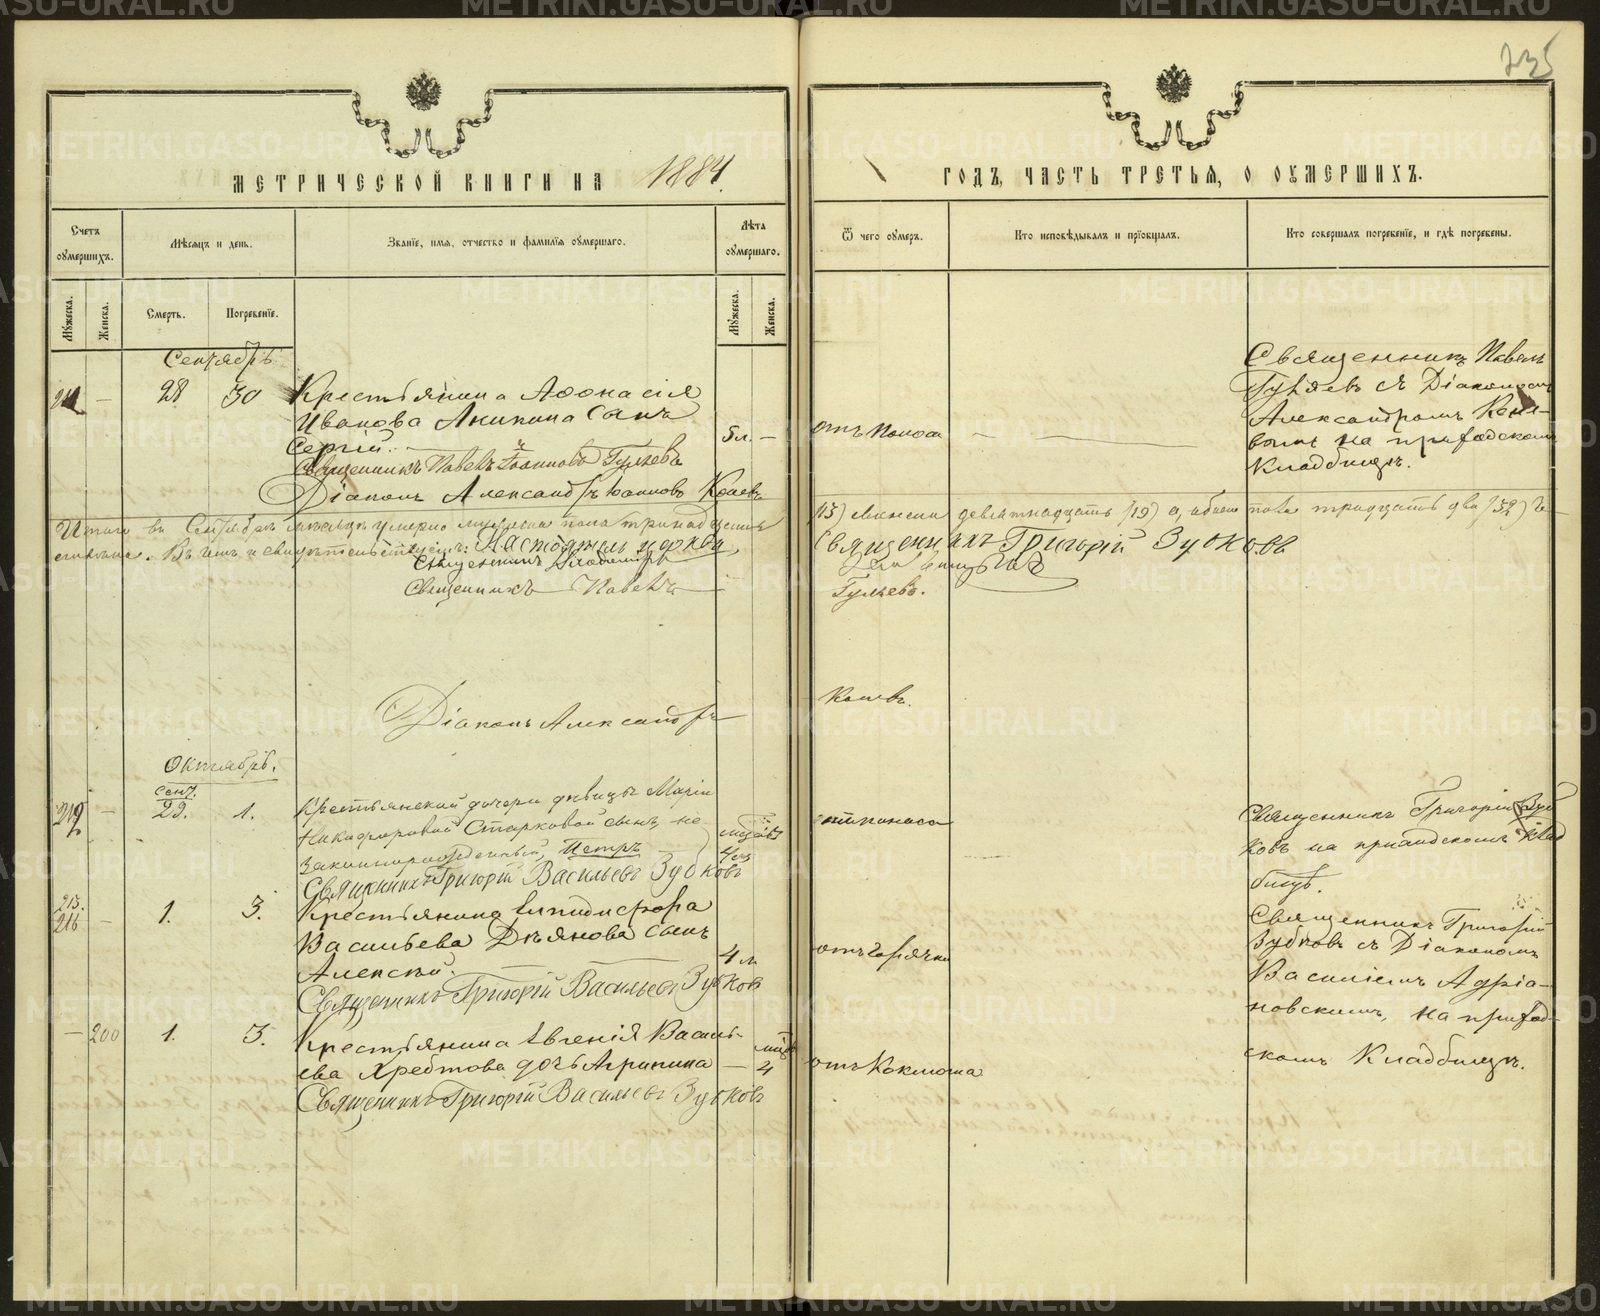 235
МЕТРИЧЕСКОЙ КНИГИ НА 1884.
ГОДЪ, ЧАСТЬ ТРЕТЬЯ, О ОУМЕРШИХЪ.
Счетъ оумершихъ.
Мѣсяцъ и день.
Званїе, имя, отчество и фамилїя оумершаго.
Лѣта оумершаго.
Ѿ чего оумеръ.
Кто исповѣдывалъ и прїобщалъ.
Кто совершалъ погребенїе, и гдѣ погребены.
Мужеска.
Женска.
Смерть.
Погребенїе.
Мужеска.
Женска.
Сентябрь
28 30 Крестьянина Аѳонасія
Иванова Аникина сынъ
Сергій.
5 л. –
отъ поноса
Священникъ Павелъ Іоанновъ Гуляевъ
Діаконъ Александръ Іоанновъ
Священникъ Павелъ
Гуляевъ съ Діакономъ
Александромъ
на приходскомъ
Кладбищѣ.
Итого въ Сентябрѣ мѣсяцѣ умерло мужеска пола тринадцать
(13) женска девятнадцать (19) а обоего пола тридцать два (32) че-
Въ чемъ и свидѣтельствуемъ: Настоятель церкви,
Священникъ Григорій Зубковъ
Священникъ Владиміръ
Священникъ Павелъ
Гуляевъ.
Діаконъ Александръ
Октябрь.
сент.
29. 1. Крестьянской дочери дѣвицы Маріи
Никифоровой Старковой сынъ не
законнорожденный, Петръ
отъ поноса
Священникъ Григорій Васильевъ Зубковъ
Священникъ Григорій Зуб
ковъ на приходскомъ клад
бищѣ.
215.
216 – 1. 3. Крестьянина Елпидифора
Васильева Деянова сынъ
Алексѣй.
4 л.
отъ горячки
Священникъ Григорій Васильевъ Зубковъ
Священникъ Григорій
Зубковъ съ Діакономъ
Василіемъ Адріа-
новскимъ, на приход-
скомъ Кладбищѣ.
– 200 1. 3. Крестьянина Евгенія Василь-
ева Хребтова дочь Агрипина
– 4
отъ Коклюша
Священникъ Григорій Васильевъ Зубковъ
METRIKI.GASO-URAL.RU